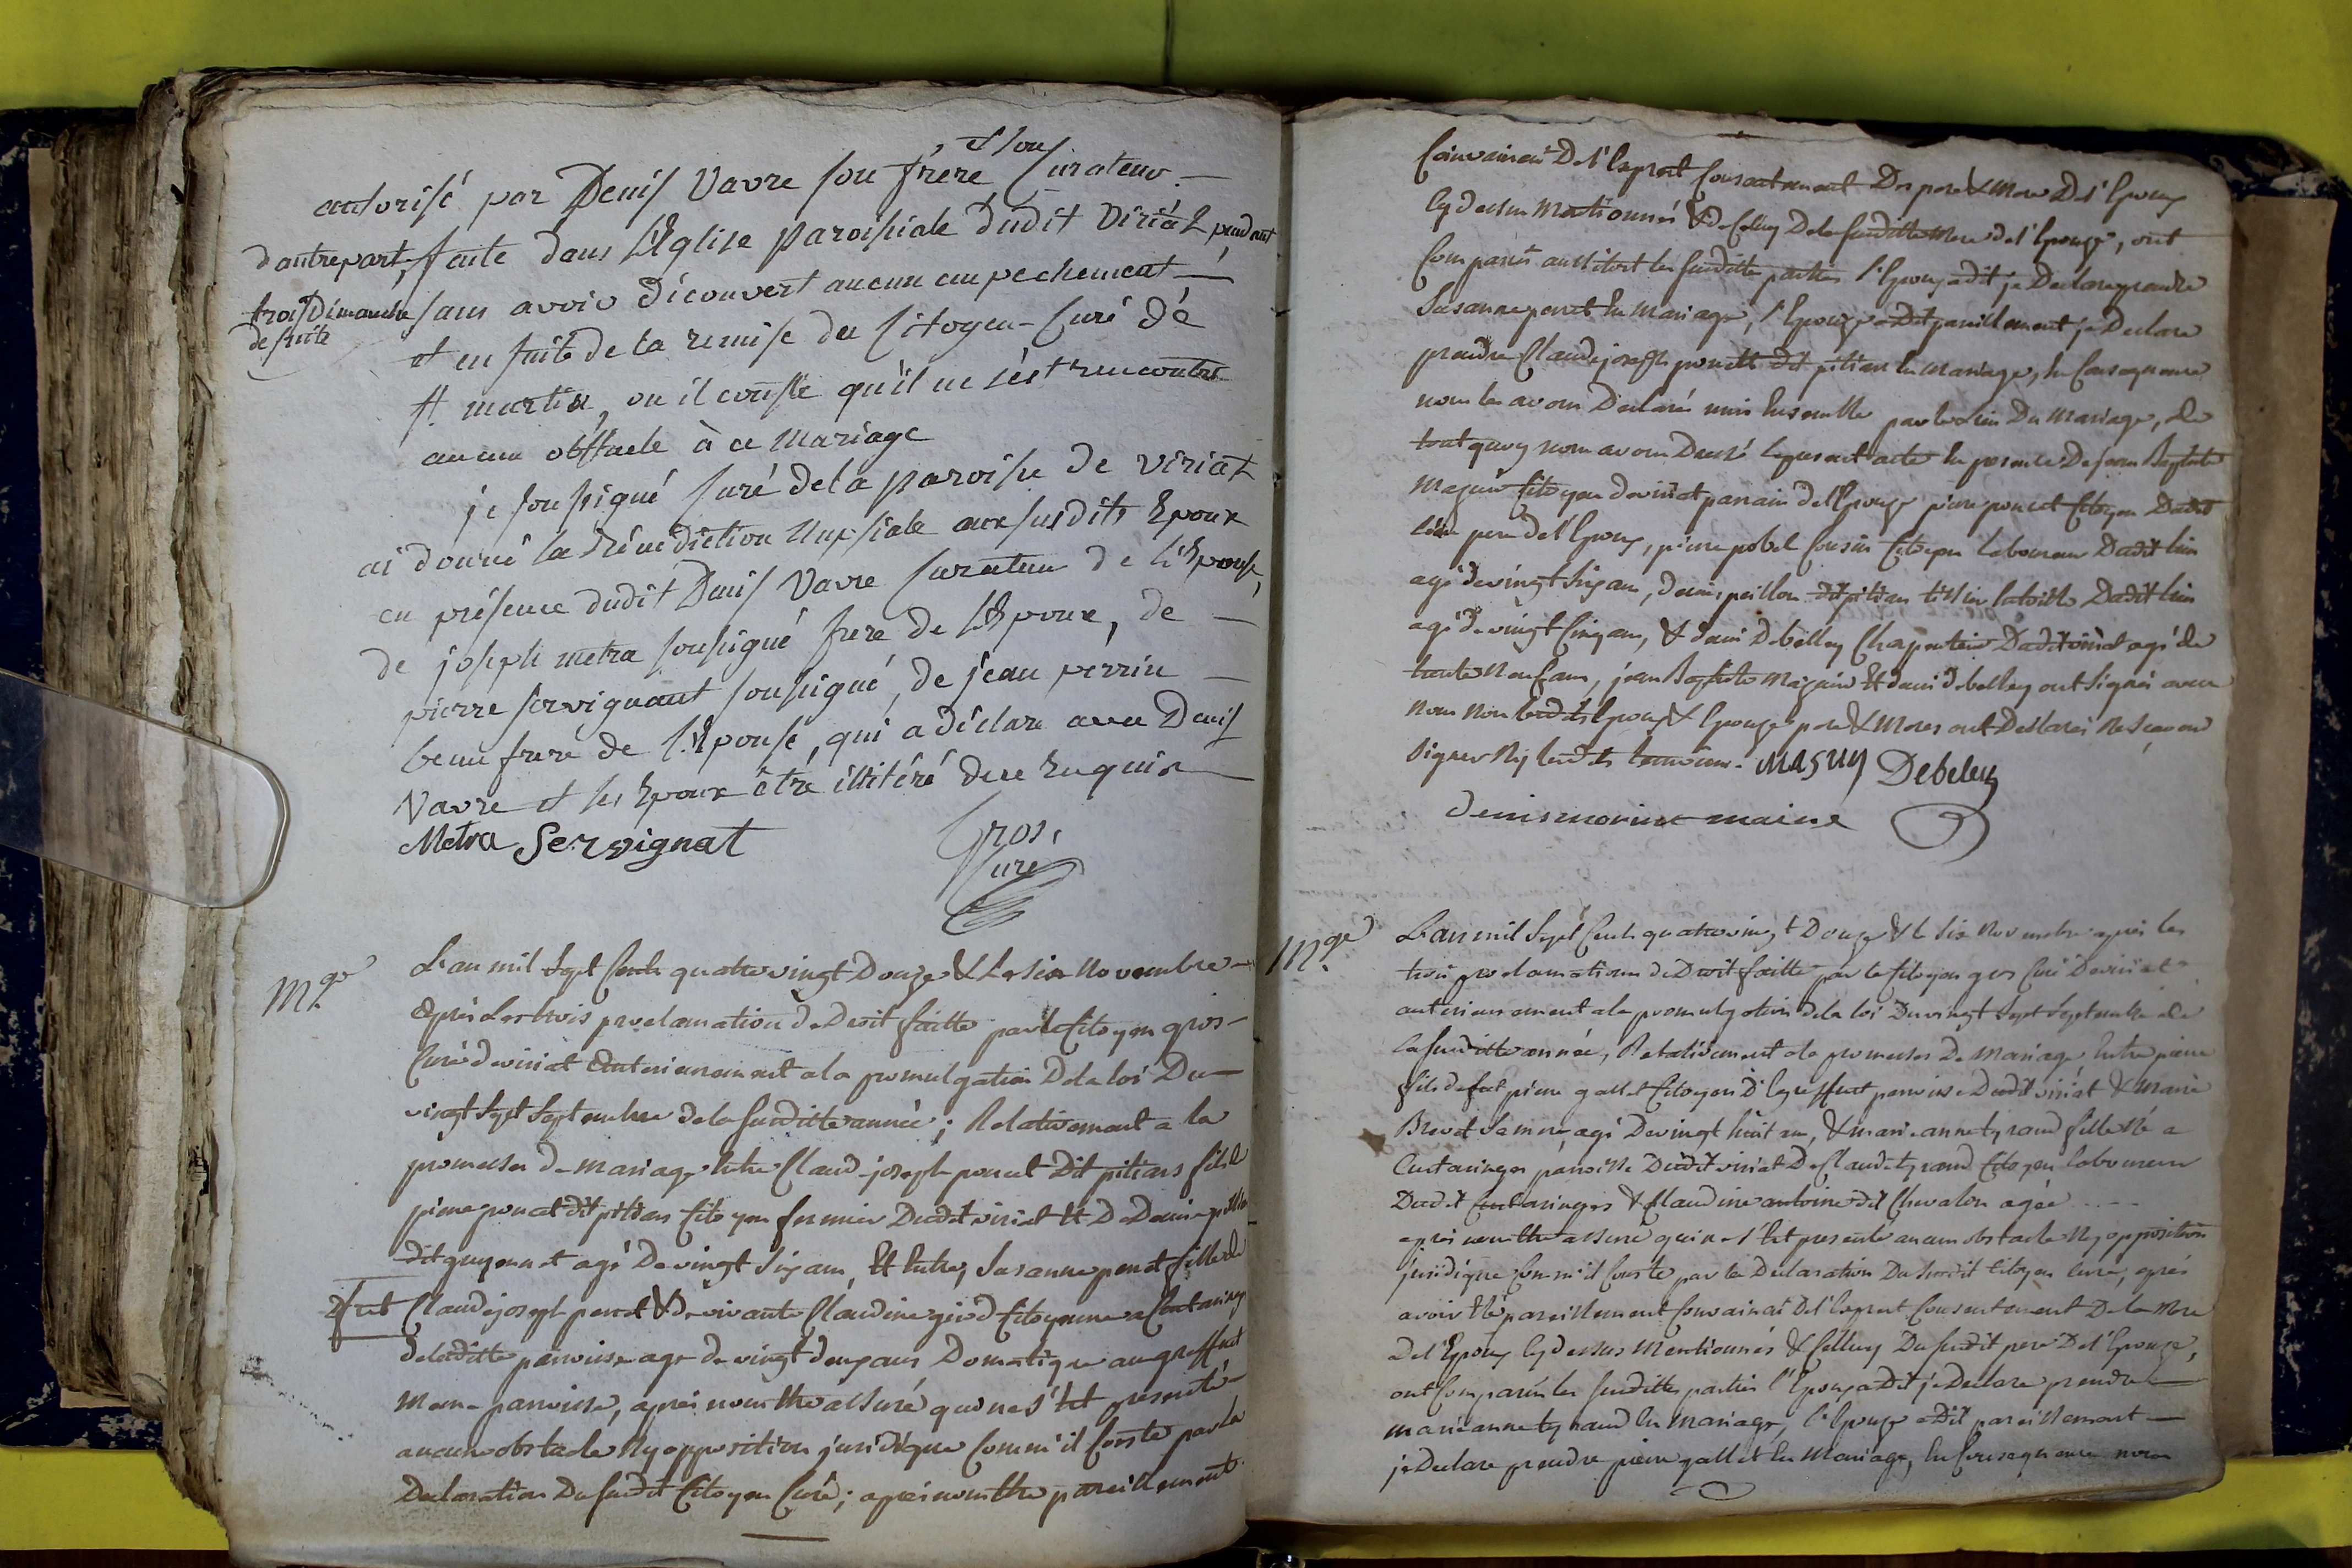 autorisé par Denis Vavre son frère, et son Curateur. —
d'autrepart, faite dans L'Eglise paroissiale dudit Viriat pendant
trois Dimanche de suite
sans avoir découvert aucun empechement —
et en suite de la remise du Citoyen Curé de
st. martin, ou il conste qu'il ne s'est rencontré
aucun obstacle à ce Mariage
je soussigné Curé de la paroisse de Viriat
ai donné la Bénédiction Nuptiale aux susdits Epoux
en présence dudit Denis Vavre Curateur de L'Epouse,
de joseph metra soussigné frere de L'Epoux, de —
pierre servignant soussigné, de jean perrin —
beau frere de L'Epouse, qui a déclaré avec Denis
Vavre et les Epoux être illitéré de ce Enquis —
Metra Servignat
Gros,
Curé
M.ge
L'an mil Sept Cents quatrevingt Douze & Le six Novembre —
Après Les trois proclamation de Droit faitte par le Citoyen gros —
Curé de viriat Anterieurement a la promulgation De la loi Du —
vingt Sept Septembre de la susditte année; Relativement a la
promesses de mariage Entre Claude joseph poncet Dit pitian fils de
pierre poncet dit pitian Citoyen fermier Dudit viriat Et De Denise
dit guyonnet agé De vingt Six ans, Et Entre, Susanne perret fille de
Feut Claude joseph perret & de vivante Claudine Citoyenne a
de laditte paroisse age de vingt deux ans Domestique au greffiat
Meme paroisse, après nous Etre assuré que ne s'Est présenté —
aucun obstacle Ny opposition juridique Comm'il Conste par la
Declaration Du susdit Citoyen Curé; après nous Etre pareillement
Convaincus De l'Exprest Consentement Des pere & Mere De l'Epoux
Cy dessus Mentionnés & de Celluy De la susditte Mere de l'Epouze, ont
Comparus aussitost les susditte parties l'Epoux a dit je Declare prendre
Susanne perret En Mariage, l'Epouze a Dit pareillement je Declare
prendre Claude joseph poncett dit pitian En Mariage, En Consequence
nous les avons Declarés unis Ensemble par le Lien Du Mariage, de
tout quoy nous avons Dressé Le present acte En presence De jean Baptiste
Mazuir Citoyen de viriat parrain de l'Epouze pierre poncet Citoyen Dudit
Lieu pere de l'Epoux, pierre pobel Cousin Citoyen Laboureur Dudit Lieu
agé de vingt Six ans, denis peillon dit pitian tissier Dudit Lieu
agé de vingt Cinq ans, & denis Debelley Charpentier Dudit viriat agé de
trente Neuf ans, jean Baptiste Mazuir Et denis debelley ont Signés avec
Nous Non lesdits Epoux & Epouze pere & Meres ont Declarés Ne Scavoir
Signer Ny lesdits temoins. MASUY Debeley
denis morier maire
M.ge
L'an mil Sept Cents quatrevingt Douze & le Six Novembre après les
trois proclamations de Droit faitte par le Citoyen gros Curé De viriat
anterieurement a la promulgation de la loi Du vingt Sept Septembre de
la susditte année, Relativement a la promesses De Mariage Entre pierre
fils de feut pierre gallet Citoyen paroisse Dudit viriat & Marie
Brevet Sa mere, agé De vingt huit ans, & marie anne tyrand fille Né a
paroisse Dudit viriat De Claude tyrand Citoyen laboureur
Dudit & Claudine antoine dit Chevalon agée ....
après nous Etre assuré qui ne s'Est presenté aucun obstacle Ny opposition
juridique Comm'il Conste par la Declaration Du susdit Citoyen Curé, après
avoir Eté pareillement Convaincus De l'Exprest Consentement De la Mere
De l'Epoux Cy dessus Mentionnés & Celluy Du susdit pere De l'Epouze,
ont Comparus les susdittes parties l'Epoux a Dit je Declare prendre —
marie anne tyrand En Mariage, l'Epouze a Dit pareillement —
je Declare prendre pierre gallet En Mariage, En Consequence nous